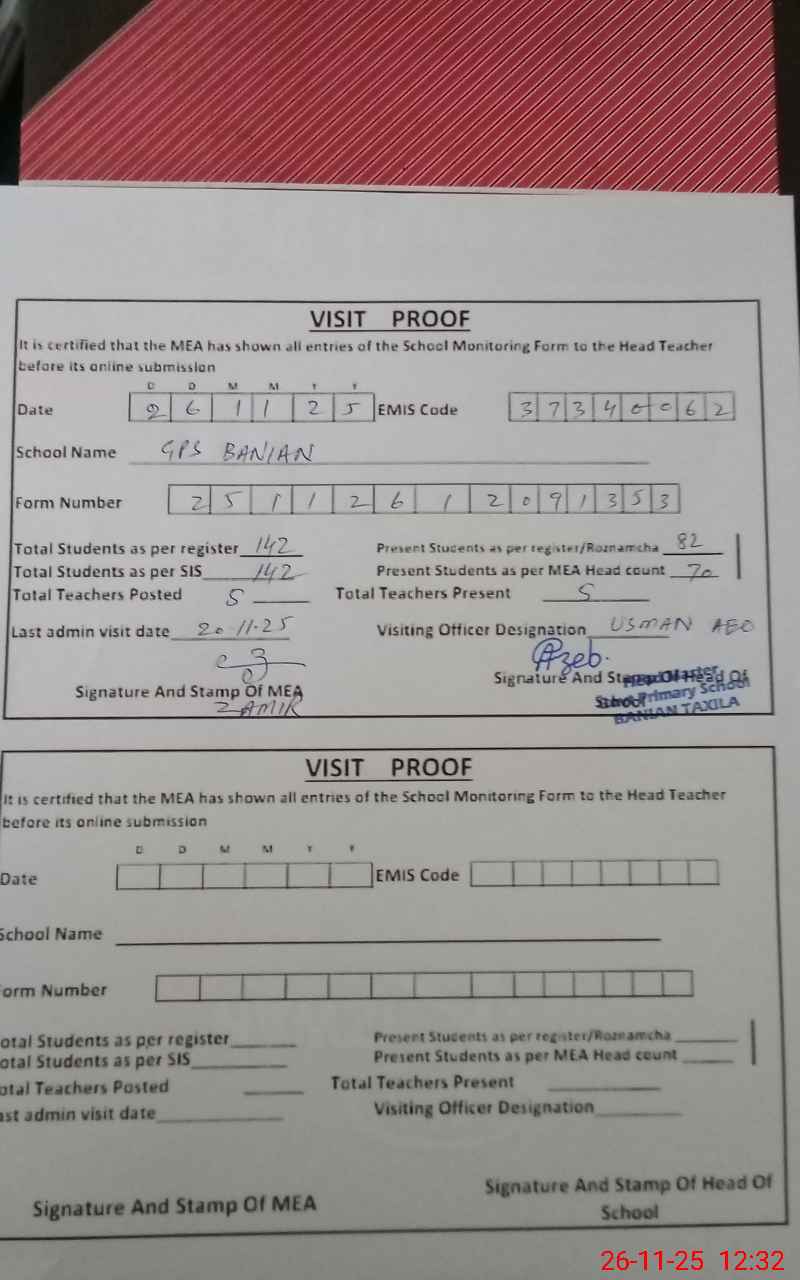 VISIT PROOF
It is certified that the MEA has shown all entries of the School Monitoring Form to the Head Teacher
before its online submission
D D M M Y Y
Date 2 6 1 1 2 5 EMIS Code 3 7 3 4 0 0 6 2
School Name GPS BANIAN
Form Number 2 5 1 1 2 6 1 2 0 9 1 3 5 3
Total Students as per register 142 Present Students as per register/Roznamcha 82
Total Students as per SIS 142 Present Students as per MEA Head count 70
Total Teachers Posted 5 Total Teachers Present 5
Last admin visit date 20-11-25 Visiting Officer Designation USMAN AEO
Azeb.
Signature And Stamp Of MEA Signature And Stamp Of Head Of
School
ZAMIR
Head Master
Primary School
BANIAN TAXILA
VISIT PROOF
It is certified that the MEA has shown all entries of the School Monitoring Form to the Head Teacher
before its online submission
D D M M Y Y
Date EMIS Code
School Name
orm Number
otal Students as per register Present Students as per register/Roznamcha
otal Students as per SIS Present Students as per MEA Head count
otal Teachers Posted Total Teachers Present
ast admin visit date Visiting Officer Designation
Signature And Stamp Of MEA Signature And Stamp Of Head Of
School
26-11-25 12:32